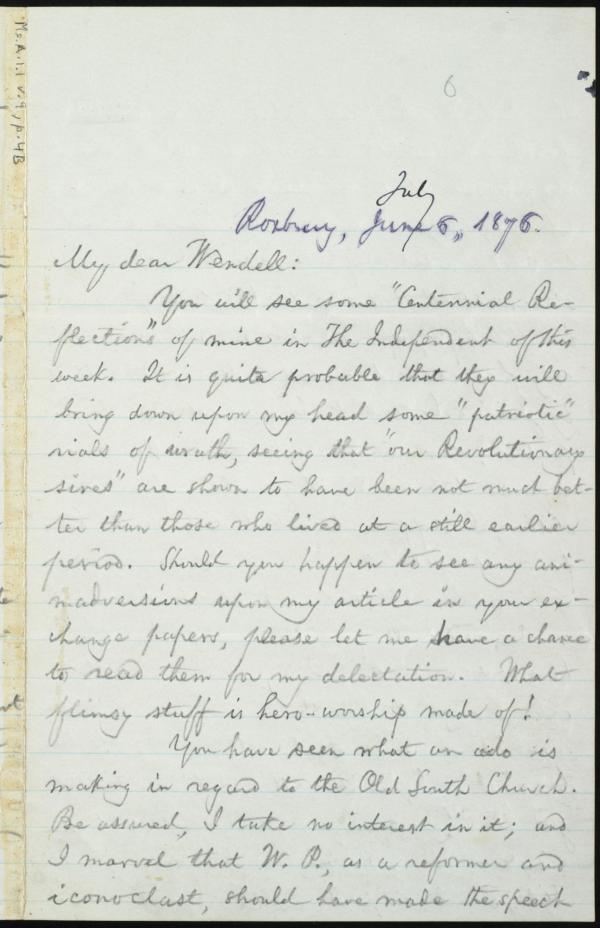 Ms.A.1.1 v.9, p.4B
6
July
Roxbury, June 6, 1876.
My dear Wendell:
You will see some "Centennial Re-
flections" of mine in The Independent of this
week. It is quite probable that they will
bring down upon my head some "patriotic"
vials of wrath, seeing that "our Revolutionary
sires" are shown to have been not much bet-
ter than those who lived at a still earlier
period. Should you happen to see any ani-
madversions upon my article in your ex-
change papers, please let me have a chance
to read them for my delectation. What
flimsy stuff is hero-worship made of!
You have seen what an ado is
making in regard to the Old South Church.
Be assured, I take no interest in it; and
I marvel that W. P., as a reformer and
iconoclast, should have made the speech